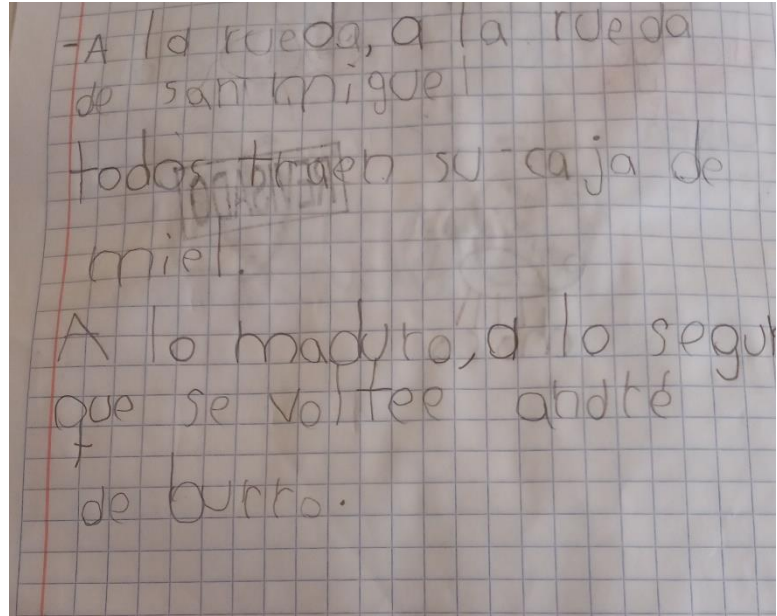 -A la rueda, a la rueda
de san miguel
todos traen su caja de
miel.
A lo maduro, a lo segur
que se voltee andré
de burro.